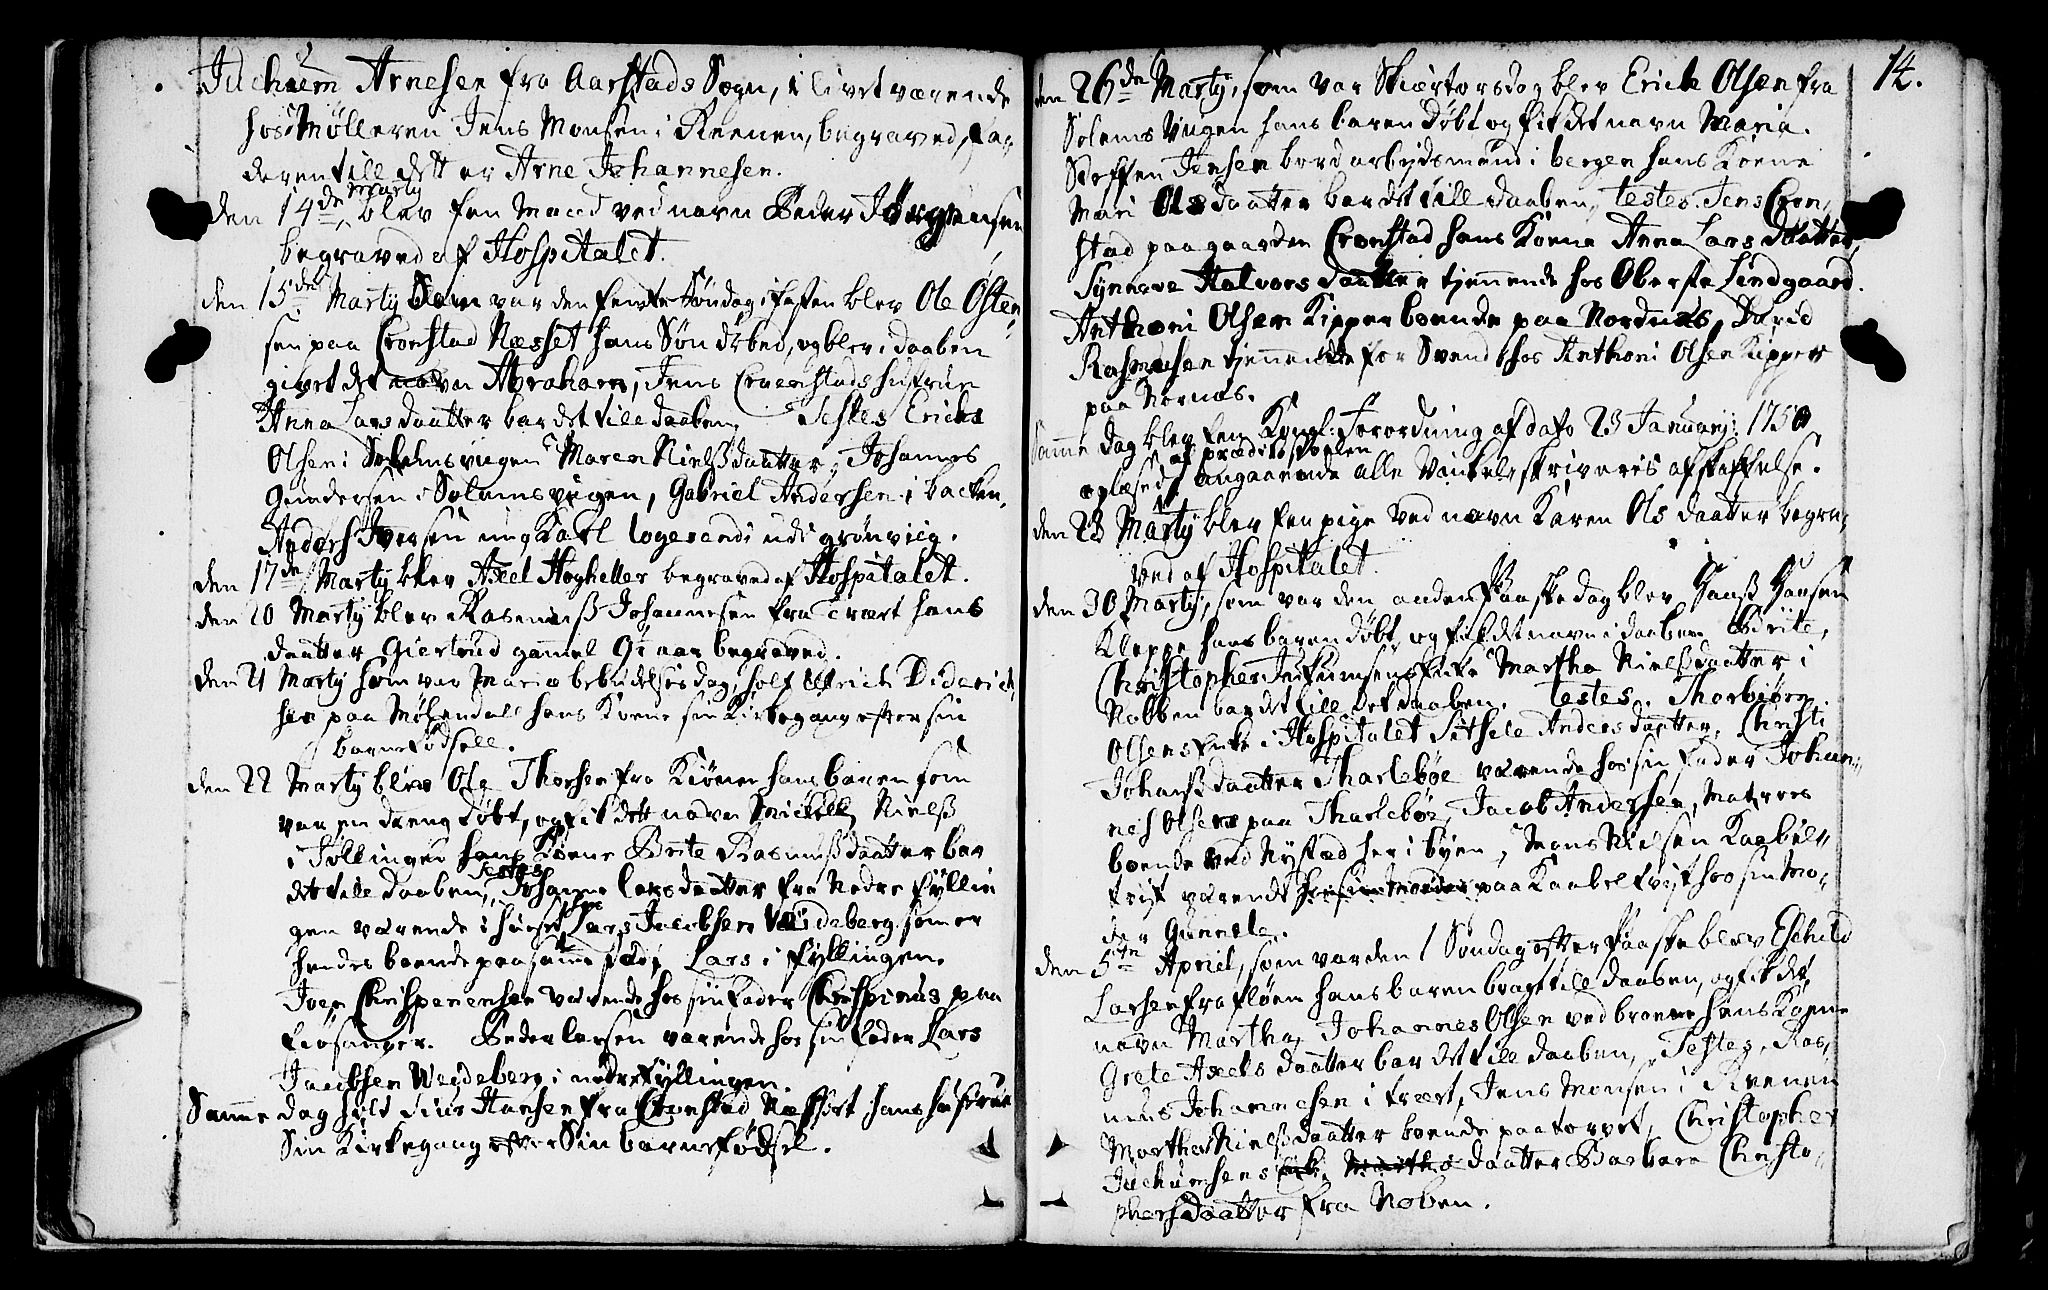 Jochum Arnesen fra Aarstads Sogn, i livet værende
hos Mølleren Jens Monsen i Kvenen, begraved, fa-
deren till dett er Arne Johannesen.
den 14de Marty blev een Mand ved navn Peder Jörgensen
begraved af Hospitalet.
den 15de Marty Som var den femte Söndag i fasten blev Ole Østen-
sen paa Cronstad Næsset hans Søn döbed, og blev i daaben
givet det navn Abraham, Jens Cronstads hustrue
Anna Larsdaatter bar det till daaben, Testes Erick
Olsen i Solemsviigen Maren Nielsdaatter, Johannes
Gundersen i Solemsviigen, Gabriel Andersen i backen,
Anders Iversen ung Karl logerende ude i grönviig.
den 17de Marty blev Axel Hogheller begraved af Hospitalet.
den 20 Marty blev Rasmus Johannesen fra Tvært hans
daatter Giertrud gammel aar begraved.
den 21 Marty som var Maria bebudelses dag, holt Ulrich Diderich-
sen paa Möhlendall hans Kone sin Kirkegang efter sin
barnefödsell.
den 22 Marty blev Ole Thorsen fra hans baren som
var en dreng döbt, og fik dett navn Mickell, Niels
i Föllingen hans Kone Brite Rasmusdaatter bar
det till daaben, Testes Johanne Larsdaatter fra Nedre fyllin
gen værende i huset hos Lars Jacobsen Weideberg som er
hendes boende paa samme sted, Lars i fyllingen.
Joen Chrispinensen værende hos sin fader Chrispinus paa
fiösanger. Peder Larsen værende hos sin fader Lars
Jacobsen Weideberg i nedre fyllingen.
Samme dag holt Siur Hansen fra Cronstad Næsset hans hustrue
Sin Kirkegang efter Sin barnefödsel.
14.
den 26de Marty, som var Skiærtorsdag blev Erick Olsen fra
Solems Viigen hans baren döbt og fik det navn Maria.
Steffen Jensen bord arbeydsmand i bergen hans Kone
Mari Olsdaatter bar det till daaben, testes Jens Cron-
stad paa gaarden Cronstad hans Kone Anna Larsdaatter,
Synneve Halvorsdaatter tjennende hos Oberste Lindgaard.
Anthoni Olsen Kipper boende paa Nordnes, David
Rasmusen tjennende for Svend hos Anthoni Olsen Kipper
paa Nornes.
Samme dag blev een Kongl: Forordning af dato 23 Januarij 1750
af prædikestoelen
oplæsed, angaaende alle Vinckelskriveris afskaffelse.
den 28 Marty blev een pige ved navn Karen Olsdaatter begra-
ved af Hospitalet.
den 30 Marty, som var den anden Paaske dag blev Hans Hansen
Kleppe hans baren döbt, og fik det navn i daaben Brite,
Christopher Jochumsens Enke Martha Nielsdaatter i
Nobben bar det till det daaben. Testes. Thorbiörn
Olsens Enke i Hospitalet Sithele Andersdaatter, Christi
Johansdaatter Tharleböe værende hos sin fader Johan-
nes Olsen paa Tharleböe, Jacob Andersen, Matros
boende ved Nystæd her i byen, Mons Nielsen Kaabel-
tvist værende hos sin Moder paa Kaabeltvist hos sin Mo-
der Gunnele.
den 5te Apriel, som var den 1 Söndag efter Paaske blev Eschild
Larsen fra flöen hans baren bragt till daaben, og fik det
navn Martha, Johannes Olsen ved broene hans Kone
Grete Axelsdaatter bar det till daaben, Testes, Ras-
mus Johannesen i tvært, Jens Monsen i Kvenen
Martha Nielsdaatter boende paa torvet, Christopher
Jochumsens Enke Martha daatter Barbara Christo-
phersdaatter fra Noben.